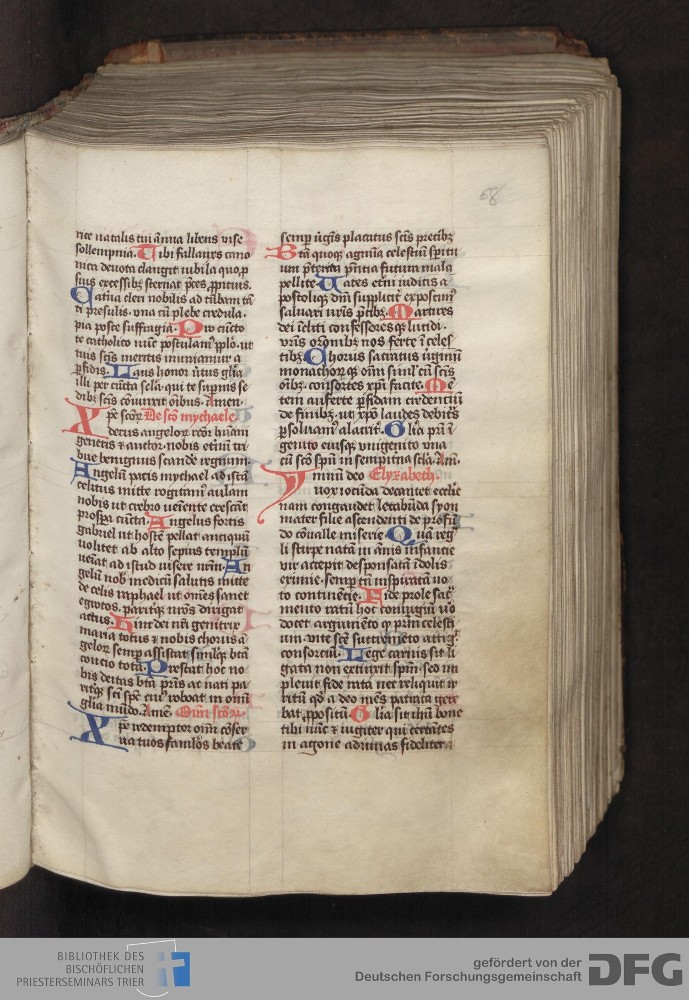 68
nice natalis tui annua libens vise
sollempnia. Tibi fallanx cano
nica devota clangit iubila quo p
sius excessibz sternat p̄ces ꝓpicius.
Caterua cleri nobilis ad tūbam tā
ti presulis. una cū plebe credula.
pia posce suffragia. Pro cūcto
te catholico nūc postulam᷒ pplō. ut
tuis scīs meritis muniamur a
ꝑfidis. Laus honor v̄tus glīa
illi per cūcta scla. qui te supnis se
dibz scīs cōiunxit oībus. Amen.
Xpe scōꝝ De scō mychaele.
decus angeloꝝ rcōr humani
generis ⁊ auctor. nobis etnū tri
bue benignus scande regnum.
Angelū pacis mychael ad istā
celitus mitte rogitam᷒ aulam
nobis ut crebro ueniente crescāt
prospa cūcta. Angelus fortis
gabriel ut hostē pellat antiquū
uolitet ab alto sepius templū
ueniat ad istud visere nr̄m. An
gelū nob̄ medicū salutis mitte
de celis raphael ut om̄es sanet
egrotos. pariterqꝫ nr̄os dirigat
actus. Hinc dei nr̄i genitrix
maria totus ⁊ nobis chorus ā
geloꝝ semp assistat simlqꝫ bt̄a
concio tota. Prestat hoc no
bis deitas bt̄a pr̄is ac nati pa
ritqꝫ sci spc̄ cui᷒ reboat in om̄i
glīa mūdo. Amē. Oīm scōꝝ.
Xpe redemptor oīm cōser
ua tuos famlōs beate
semp v̄gīs placatus scīs precibꝫ
Bt̄a quoqꝫ agmina celestiū spiritu
um p̄terita p̄ntia futura mala
pellite. Uates etn̄i iudicis a
postoliqꝫ dn̄i suppliciter exposcim᷒
saluari vr̄is p̄cibꝫ. Martires
dei icliti confessoresqꝫ lucidi.
vr̄is orōnibꝫ nos ferte ī celes
tibꝫ. Chorus sacratus v̄ginū
monachoꝝqꝫ oīm siml̄ cū scīs
oībꝫ. consortes xpī facite. Gē
tem auferte ꝑfidam credenciū
de finibꝫ. ut xpō laudes debitas
ꝑsoluam᷒ alacriter. Glīa pr̄i ī
genito eiusqꝫ vnigenito vna
cū scō spū in sempitna scla. Am̄.
Ymnū deo Elyzabeth.
uox iocūda decantet ecclie
nam congaudet letabūda syon
mater filie ascendenti de profū
do cōualle miserie. Quā reg
li stirpe natā in ānis infancie
vir accepit desponsatā īdolis
eximie. semp tn̄ inspiratā uo
to continētie. Fide prole sac᷒
mento ratū hoc coniugiū vo
docet argumēto qꝫ prim celesti
um. vnit scē
consorciū. Lege carnis sit li
gata non extinxit spm̄. sed im
pleuit fide rata nec reliquit
ritū qd̄ a deo mēs parata gere
bat ꝓpositū. Glīa sit ihū bone
tibi nūc ⁊ iugiter qui certātes
in agone adiuuas fideliter.
BIBLIOTHEK DES
BISCHÖFLICHEN
PRIESTERSEMINARS TRIER
gefördert von der
Deutschen Forschungsgemeinschaft
DFG